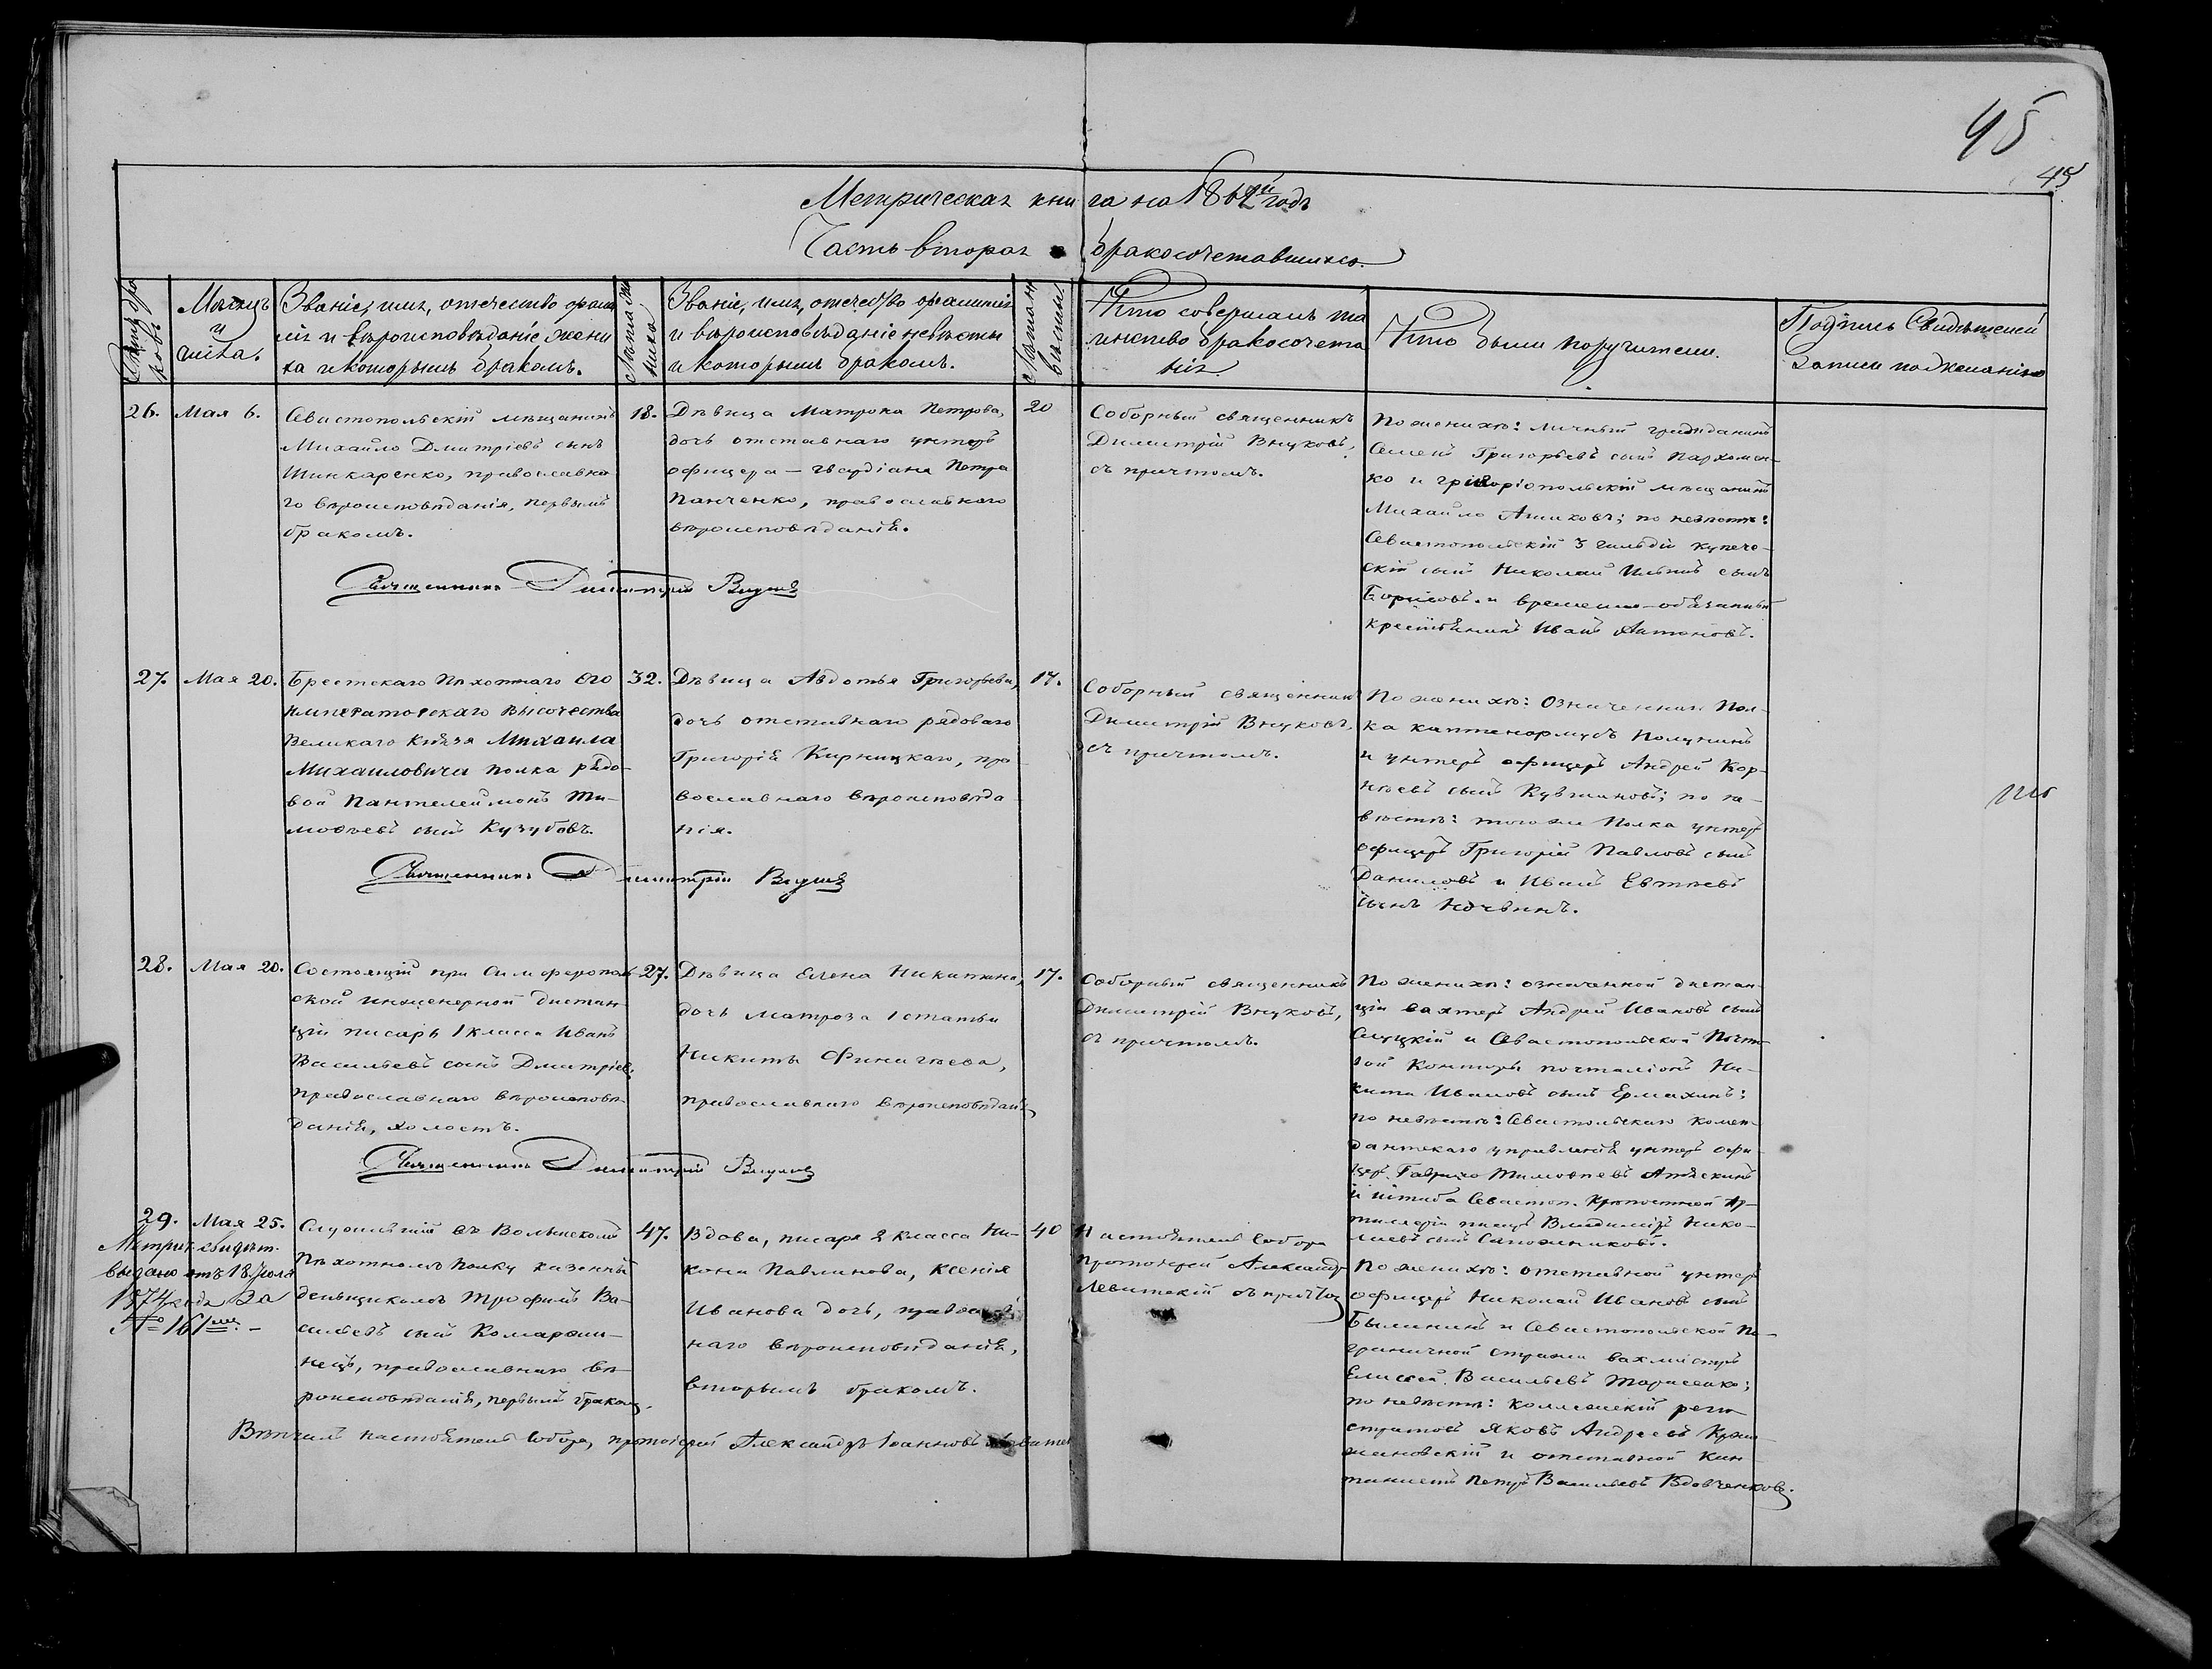 45
45
Метрическая книга на 1862й годъ
Часть вторая бракосочетавшихся.
Мѣсяцъ
и
числа.
Званіе, имя, отечество фами
лія и вѣроисповѣданіе жени
ха и которымъ бракомъ.
Лѣта же
ниха.
Званіе, имя, отечество фамилія
и вѣроисповѣданіе невѣсты
и которымъ бракомъ.
Лѣта не
вѣсты.
Кто совершалъ та
инство бракосочета
нія.
Кто были поручители.
Подпись свидѣтелей
записи по желанію
26.
Мая 6.
Севастопольскій мѣщанинъ
Михайло Дмитріевъ сынъ
Шинкаренко, православна
го вѣроисповѣданія, первымъ
бракомъ.
18.
Дѣвица Матрона Петрова,
дочь отставнаго унтеръ
офицера – гвардіана Петра
Панченко, православнаго
вѣроисповѣданія.
20
Соборный священникъ
Димитрій Внуковъ,
съ причтомъ.
По женихѣ: личный гражданинъ
Семенъ Григорьевъ сынъ Пархомен-
ко и григоріопольскій мѣщанинъ
Михайло Ашиковъ; по невѣстѣ:
Севастопольскій 3 гильдіи купече-
скій сынъ Николай Ильинъ сынъ
Борисовъ и временно-обязанный
крестьянинъ Иванъ Антоновъ.
Священникъ Димитрій Внуковъ
27.
Мая 20.
Брестскаго Пѣхотнаго Его
Императорскаго Высочества
Великаго Князя Михаила
Михаиловича полка рядо-
вой Пантелеймонъ Ти-
мофѣевъ сынъ Кузубовъ.
32.
Дѣвица Авдотья Григорьева,
дочь отставнаго рядоваго
Григорія Кирницкаго, пра
вославнаго вѣроисповѣда
нія.
17.
Соборный священникъ
Димитрій Внуковъ,
съ причтомъ.
По женихѣ: Означеннаго Пол-
ка каптенармусъ Полунинъ
и унтеръ офицеръ Андрей Кор-
нѣевъ сынъ Кузминовъ; по не-
вѣстѣ: того же Полка унтеръ
офицеръ Григорій Павловъ сынъ
Даниловъ и Иванъ Евтѣевъ
сынъ Ночвинъ.
Священникъ Димитрій Внуковъ
28.
Мая 20.
Состоящій при Симферополь
ской инженерной дистан
ціи писарь 1 класса Иванъ
Васильевъ сынъ Дмитріевъ,
православнаго вѣроисповѣ
данія, холостъ.
27.
Дѣвица Елена Никитина,
дочь матроза 1 статьи
Никиты Финигѣева,
православнаго вѣроисповѣданія,
17.
Соборный священникъ
Димитрій Внуковъ,
съ причтомъ.
По женихѣ: означенной дистан
ціи вахтеръ Андрей Ивановъ сынъ
Слуцкій и Севастопольской Почто
вой Конторы почталіонъ Ни-
кита Ивановъ сынъ Ермахинъ;
по невѣстѣ: Севастопольскаго комен-
дантскаго управленія унтеръ офи-
церъ Гаврило Тимофѣевъ
и штаба Севастоп. Крѣпостной Ар-
тиллеріи писарь Владиміръ Нико-
лаевъ сынъ Сапожниковъ.
Священникъ Димитрій Внуковъ
29.
Мая 25.
Метрич. свидѣт.
выдано отъ 18 Іюля
1874 года за
№ 161мъ. –
Служившій въ Волынскомъ
Пѣхотномъ Полку казеннымъ
деньщикомъ Трофимъ Ва-
сильевъ сынъ Комарни-
нецъ, православнаго вѣ-
роисповѣданія, первымъ бракомъ.
47.
Вдова, писаря 2 класса Ни-
кона Павлинова, Ксенія
Иванова дочь, православ
наго вѣроисповѣданія,
вторымъ бракомъ.
40
Настоятель Собора
Протоіерей Александръ
Левитскій съ причтомъ
По женихѣ: отставной унтеръ
офицеръ Николай Ивановъ сынъ
Былининъ и Севастопольской По-
граничной стражи вахмистръ
Елисей Васильевъ Тарасенко;
по невѣстѣ: коллежскій реги
страторъ Яковъ Андреевъ Крыж
жановскій и отставной кан
тонистъ Петръ Васильевъ Вдовченковъ.
Вѣнчалъ настоятель Собора, протоіерей Александръ Іоанновъ Левит